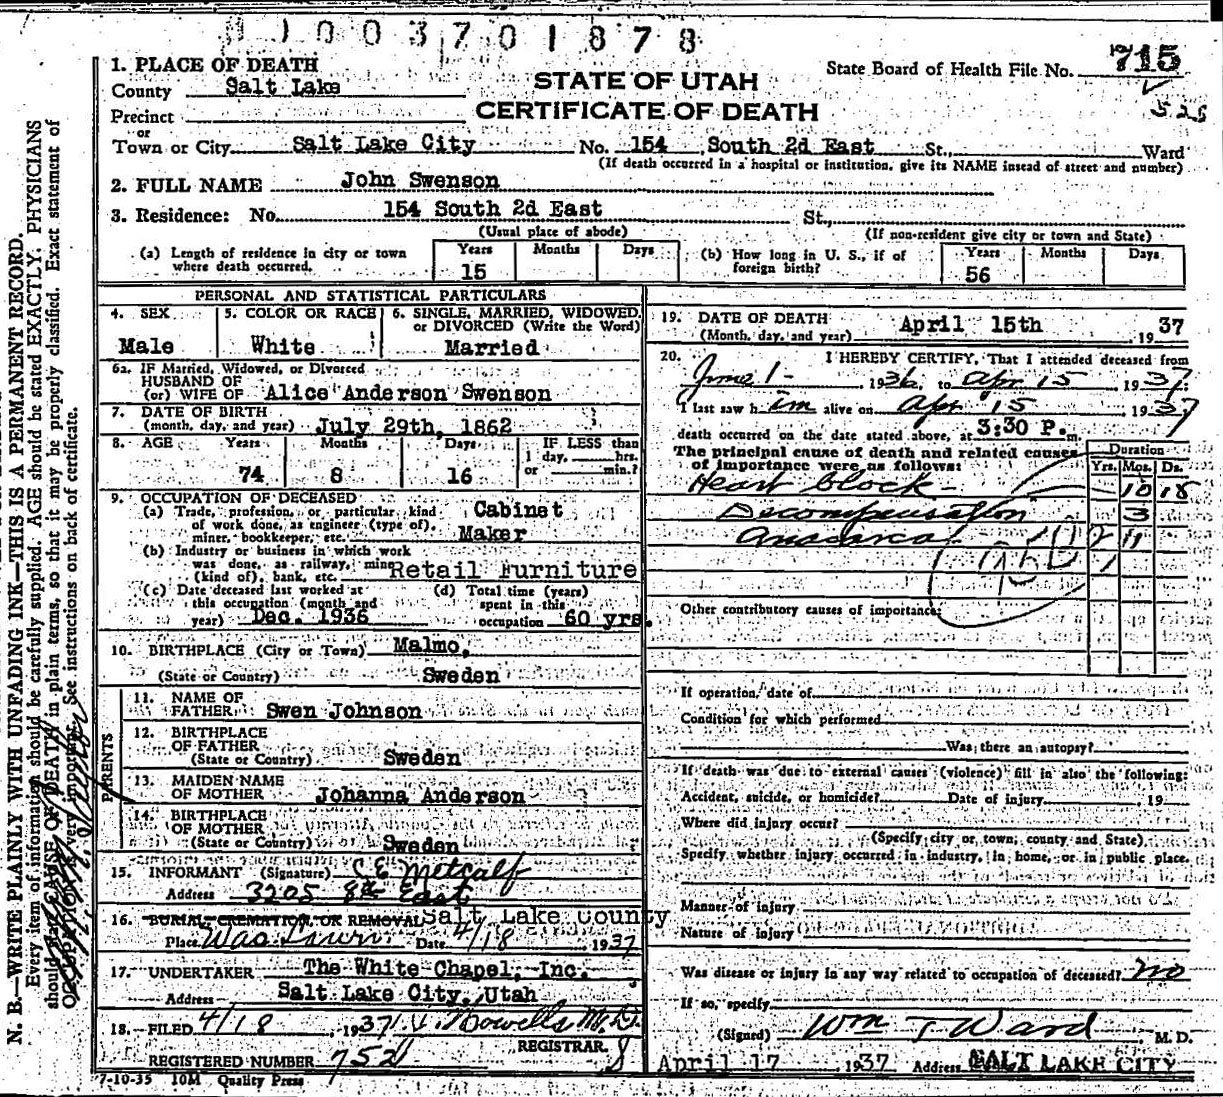 1003701878
1. PLACE OF DEATH
County Salt Lake
STATE OF UTAH
CERTIFICATE OF DEATH
State Board of Health File No. 715
Precinct
or
Town or City Salt Lake City No. 154 South 2d East St., Ward
(If death occurred in a hospital or institution, give its NAME insead of street and number)
2. FULL NAME John Swenson
3. Residence: No. 154 South 2d East St.,
(Usual place of abode) (If non-resident give city or town and State)
(a) Length of residence in city or town where death occurred. Years 15 Months Days
(b) How long in U. S., if of foreign birth? Years 56 Months Days
PERSONAL AND STATISTICAL PARTICULARS
4. SEX Male
5. COLOR OR RACE White
6. SINGLE, MARRIED, WIDOWED, or DIVORCED (Write the Word) Married
6a. IF Married, Widowed, or Divorced
HUSBAND OF
(or) WIFE OF Alice Anderson Swenson
7. DATE OF BIRTH
(month, day, and year) July 29th, 1862
8. AGE Years 74 Months 8 Days 16 IF LESS than 1 day, hrs. or min.?
9. OCCUPATION OF DECEASED
(a) Trade, profession, or particular kind of work done, as engineer (type of), miner, bookkeeper, etc. Cabinet Maker
(b) Industry or business in which work was done, as railway, mine (kind of), bank, etc. Retail Furniture
(c) Date deceased last worked at this occupation (month and year) Dec. 1936
(d) Total time (years) spent in this occupation 60 yrs.
10. BIRTHPLACE (City or Town) Malmo,
(State or Country) Sweden
PARENTS
11. NAME OF FATHER Swen Johnson
12. BIRTHPLACE OF FATHER
(State or Country) Sweden
13. MAIDEN NAME OF MOTHER Johanna Anderson
14. BIRTHPLACE OF MOTHER
(State or Country) Sweden
15. INFORMANT (Signature) C E Metcalf
Address 3205 8th East
16. BURIAL, CREMATION, OR REMOVAL Salt Lake County
Place Was Lawn Date 4/18 1937
17. UNDERTAKER The White Chapel, Inc.
Address Salt Lake City, Utah
18. FILED 4/18, 1937 Howells M.D.
REGISTRAR
REGISTERED NUMBER 752
7-10-35 10M Quality Press
19. DATE OF DEATH
(Month, day, and year) April 15th 1937
20. I HEREBY CERTIFY, That I attended deceased from
June 1- 1936, to Apr 15 1937:
I last saw him alive on Apr 15 1937
death occurred on the date stated above, at 3:30 P. m.
The principal cause of death and related causes of importance were as follows:
Duration
Yrs. Mos. Ds.
Heart block 10 18
Decompensation 3
Anasarca
Other contributory causes of importance:
If operation, date of
Condition for which performed
Was there an autopsy?
If death was due to external causes (violence) fill in also the following:
Accident, suicide, or homicide? Date of injury 19
Where did injury occur?
(Specify city or town, county and State)
Specify whether injury occurred in industry, in home, or in public place.
Manner of injury
Nature of injury
Was disease or injury in any way related to occupation of deceased? no
If so, specify
(Signed) Wm T Ward M. D.
April 17 1937 Address SALT LAKE CITY
N. B.—WRITE PLAINLY WITH UNFADING INK—THIS IS A PERMANENT RECORD.
Every item of information should be carefully supplied. AGE should be stated EXACTLY. PHYSICIANS
should state CAUSE OF DEATH in plain terms, so that it may be properly classified. Exact statement of
OCCUPATION is very important. See instructions on back of certificate.